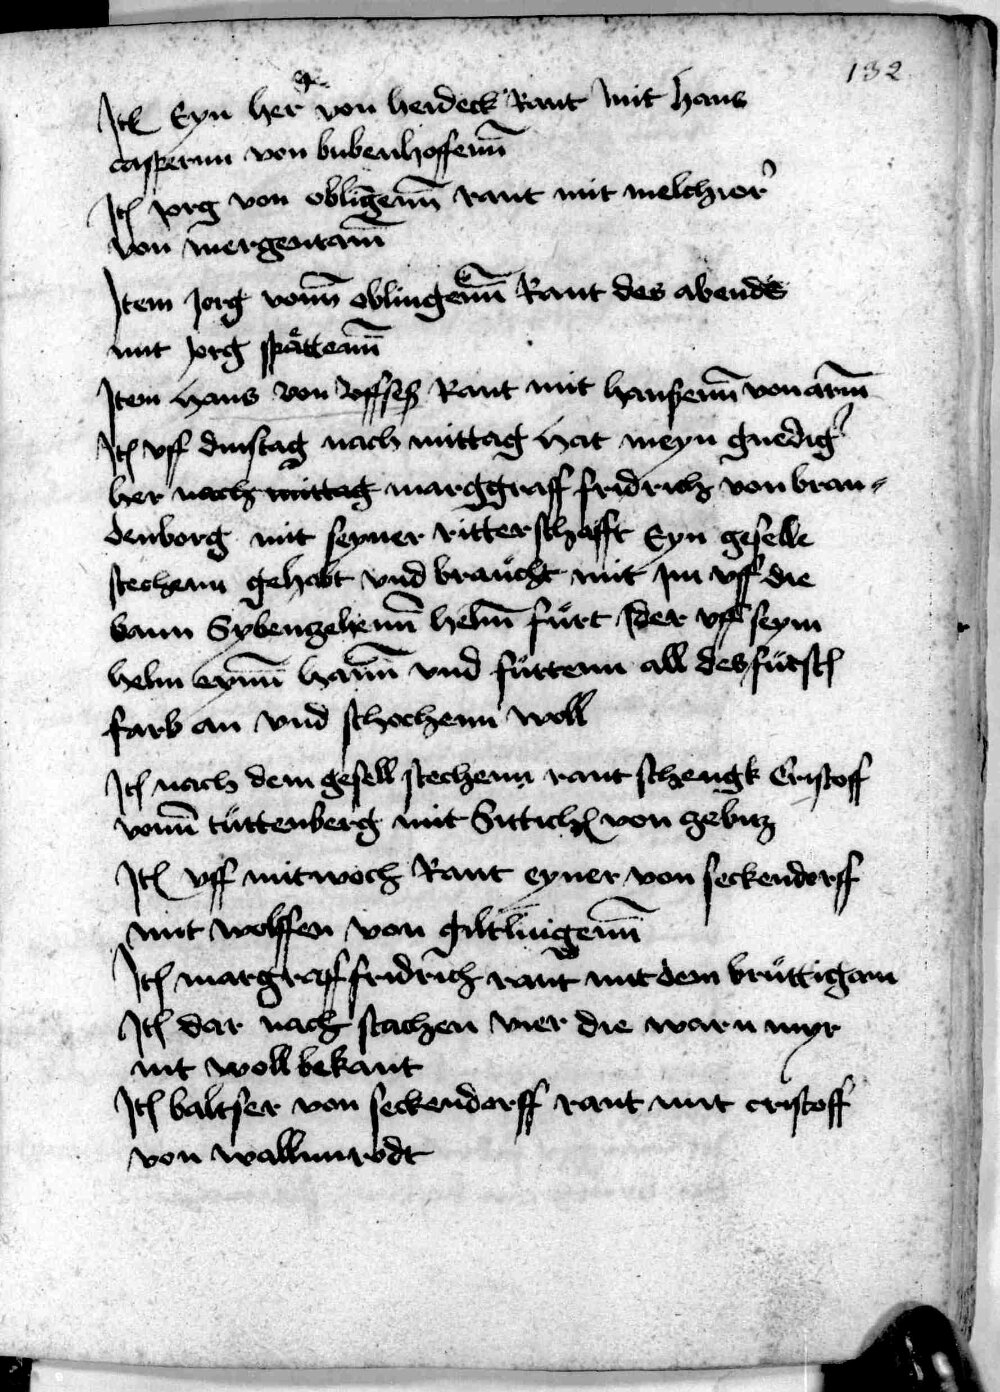 132
Jt̄ Eyn her von heideck Rant mit hans
caspernn von bubenhoffenn̄
Jt̄ jorg von oblingenn̄ rant mit melchior
von mergentam̄
Jtem Jorg vonn̄ oblingenn̄ Rant des abends
mit jorg spättenn̄
Jtem hans von Rant mit hanßenn̄ von arnn̄
Jt̄ vff dinstag nach mittag hat meyn gnedig
her nach mittag marggraff fridrich von bran-
denborg mit seyner ritterschafft Eyn geselle
stechenn gehabt vnd braücht mit jm vff die
bann Sybenzehenn̄ helm̄ fürt Jder vff seym
helm eynn̄ hann̄ vnd fürttenn all des
farb an vnd stochenn woll
Jt̄ nach dem gesell stechenn rant schengk Cristoff
vonn̄ tüttenberg mit Sittich von zebitz
Jt̄ vff mitwoch Rant eyner von seckendorff
mit wolffen von giltlingenn̄
Jt̄ margraff fridrich rant mit dem brüttigam
Jt̄ dar nach stachen vier die warn myr
nit woll bekant
Jt̄ baltser von seckendorff rant mit cristoff
von wallinrodt